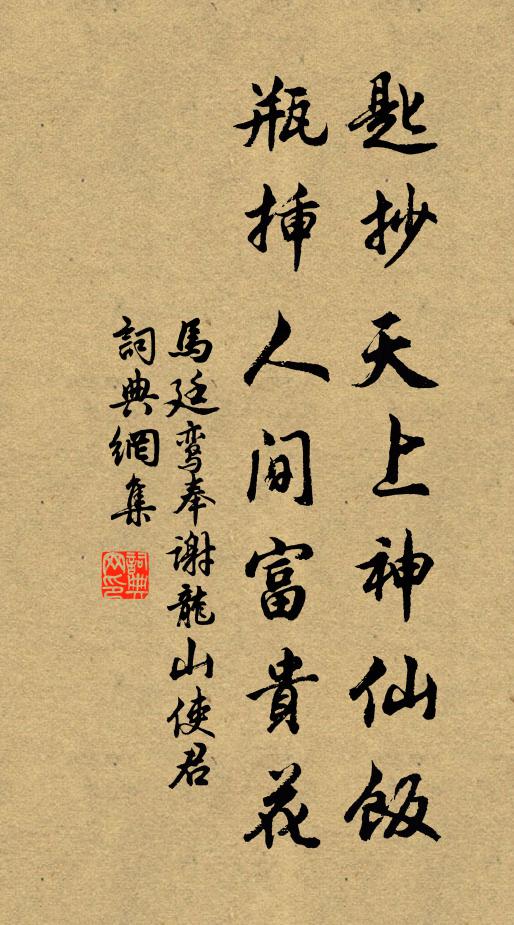 匙抄天上神仙飯
瓶揷人间富貴花
馬廷鸾奉谢龍山使君
詞典網集
詞典网印